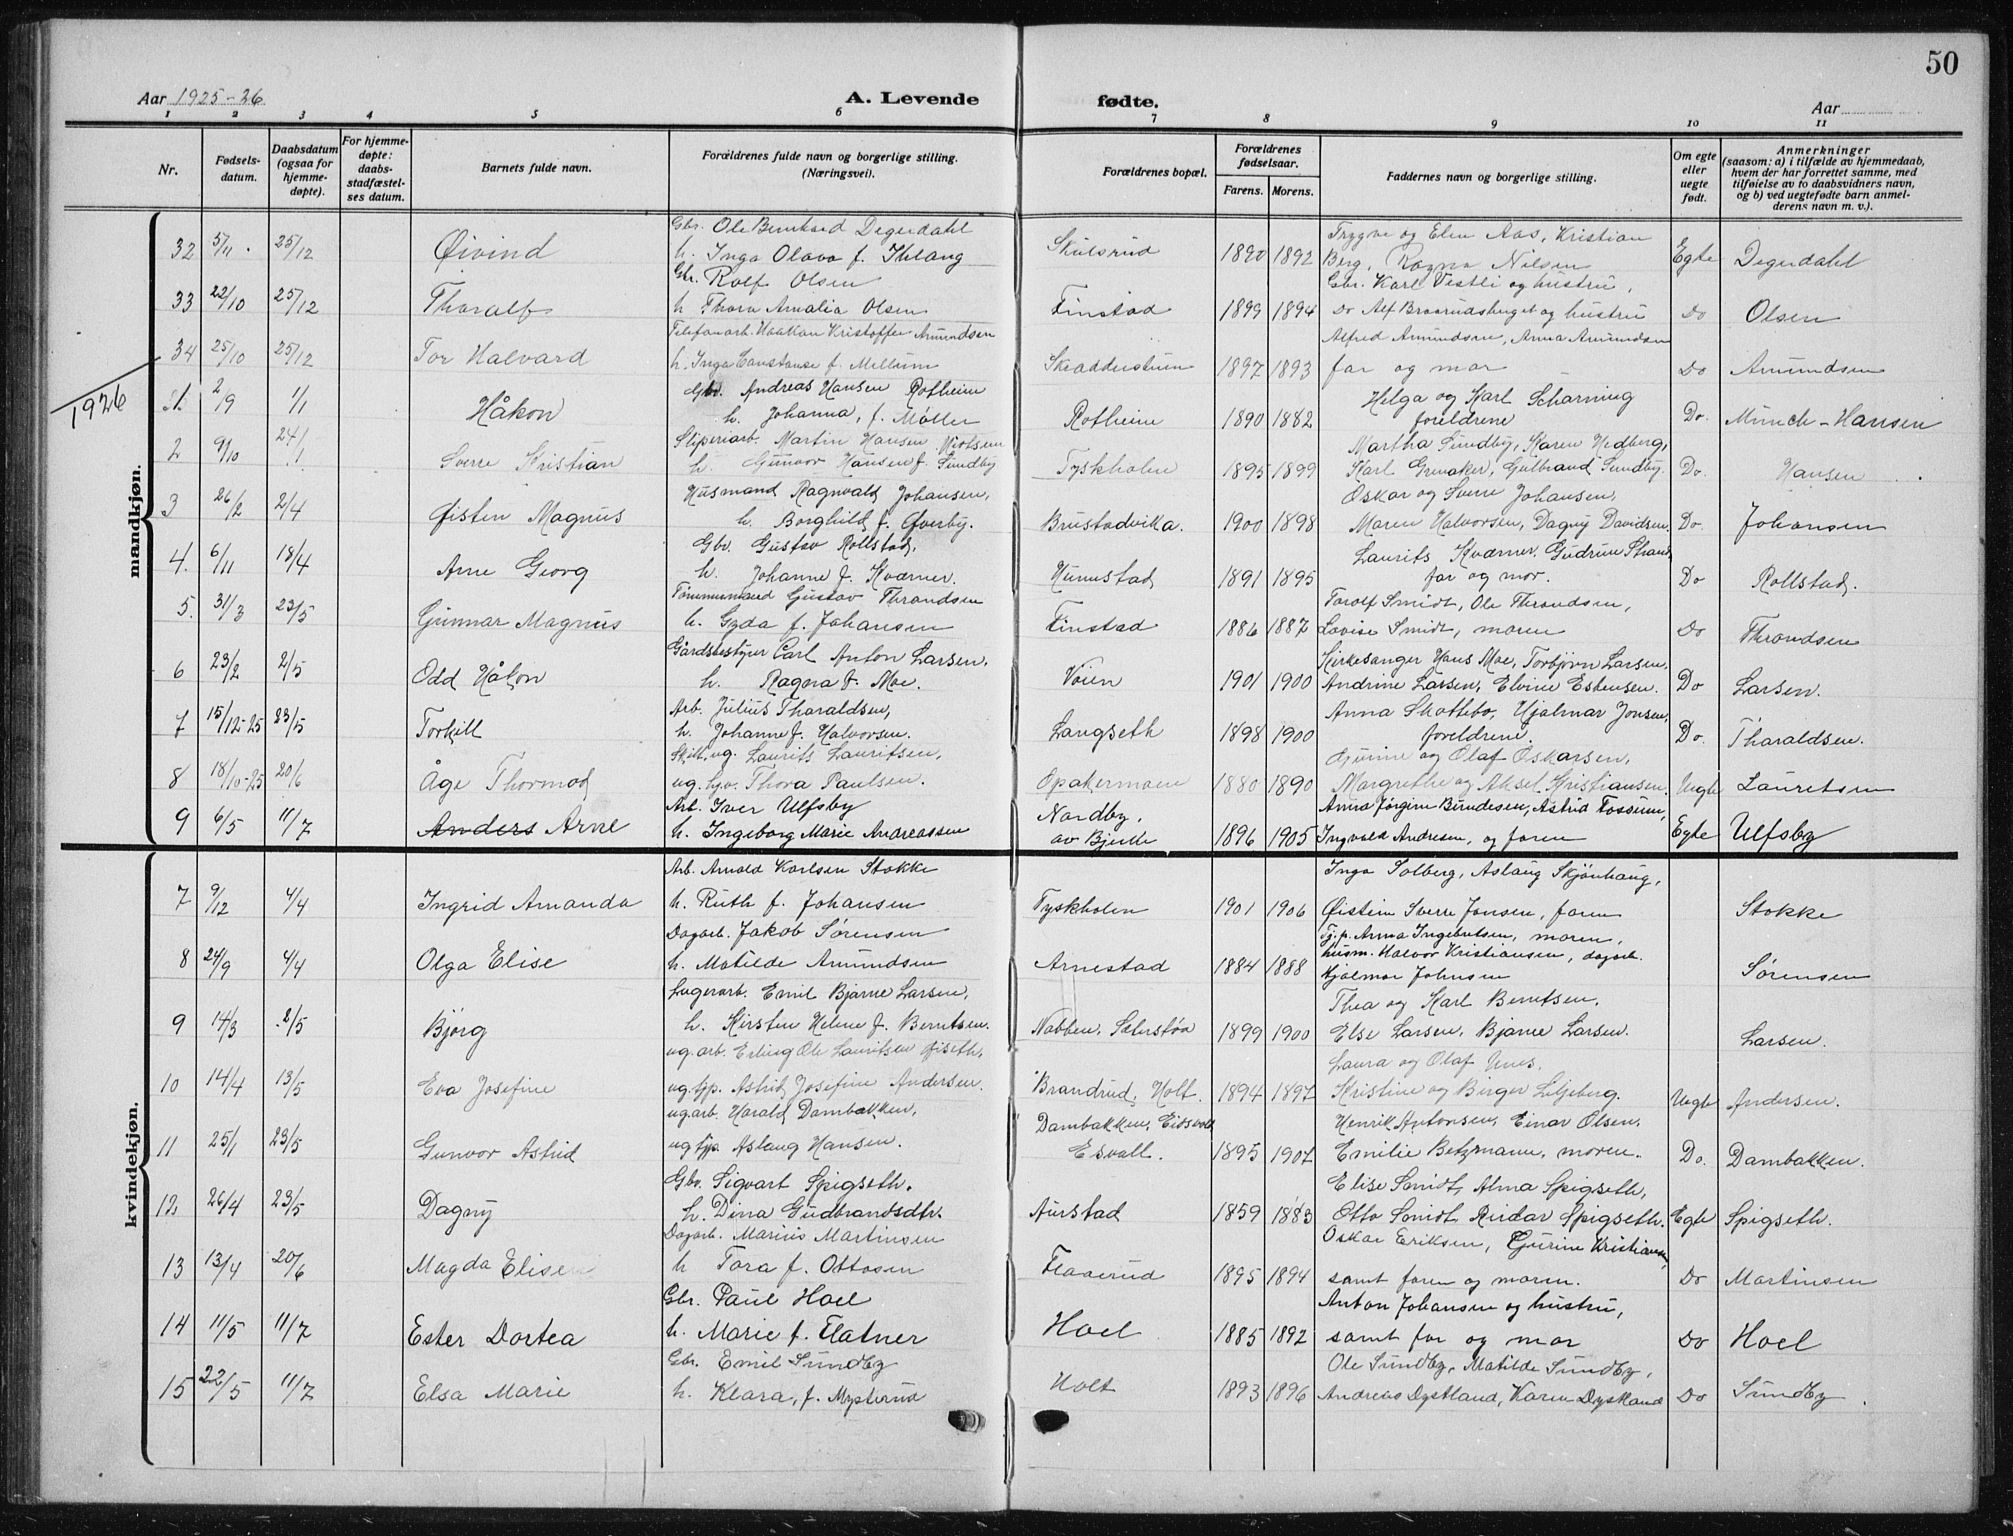 50
Aar 1925-26
A. Levende fødte.
Aar
1 2 3 4 5 6 7 8 9 10 11
Nr.
Fødsels-
datum.
Daabsdatum
(ogsaa for
hjemme-
døpte).
For hjemme-
døpte:
daabs-
stadfæstel-
ses datum.
Barnets fulde navn.
Forældrenes fulde navn og borgerlige stilling.
(Næringsvei).
Forældrenes bopæl.
Forældrenes
fødselsaar.
Farens. Morens.
Faddernes navn og borgerlige stilling.
Om egte
eller
uegte
født.
Anmerkninger
(saasom: a) i tilfælde av hjemmedaab,
hvem der har forrettet samme, med
tilføielse av to daabsvidners navn,
og b) ved uegtefødte barn anmel-
derens navn m. v.).
mandkjøn.
Gbr. Ole Berntsed Degerdahl
Trygve og Elen Aas, Kristian
32 5/11 25/12 Øivind h. Inga Olava f. Ihlang Skulsrud 1890 1892 Berg, Ragna Nilsen Egte Degerdahl
Gbr. Rolf Olsen
Gbr. Karl Vestli og hustru,
33 22/10 25/12 Thoralf h Thora Amalia Olsen Finstad 1899 1894 Do Alf Braarudsberget og hustru Do Olsen
Telefonarb. Haakan Kristoffer Amundsen
Alfred Amundsen, Anna Amundsen
34 25/10 25/12 Tor Halvard h. Inga Constanse f. Mellum Skeadderstuen 1897 1893 far og mor Do Amundsen
1926
Gbr. Andreas Hansen Rotheim
Helga og Karl Scharning
1. 2/9 1/1 Håkon h. Johanna, f. Møller Rotheim 1890 1882 foreldrene Do. Münch-Hansen
Sliperiarb. Martin Hansen
Martha Sundby, Karen Hedberg,
2 9/10 24/1 Sverre Kristian h. Gunvor Hansen f. Sundby Tyskholen 1895 1899 Karl Grenaker, Gulbrand Sundby. Do. Hansen
Husmand Ragnvald Johansen,
Oskar og Sverre Johansen,
3 26/2 2/4 Øisten Magnus h. Borghild f. Øverby. Brustadvika. 1900 1898 Maren Halvorsen, Dagny Davidsen. Do. Johansen
Gbr. Gustav Rollstad,
Laurits Kværner, Gudrun Strand
4. 6/11 18/4 Arne Georg h. Johanne f. Kværner. Hunnstad 1891 1895 far og mor. Do Rollstad.
Tømmermand Gustav Throndsen
Torolf Smidt, Ole Throndsen,
5. 31/3 23/5 Gunnar Magnus h. Gyda f. Johansen Finstad 1886 1887 Lovise Smidt, moren Do Throndsen
Gårdsbestyrer Carl Anton Larsen.
Kirkesanger Hans Moe, Torbjörn Larsen,
6 23/2 2/5 Odd Håkon h. Ragna f. Moe. Vöien 1901 1900 Andrine Larsen, Elvine Estensen. Do Larsen.
Arb. Julius Tharaldsen,
Anna Skottebo, Hjalmar Jonsen,
7 15/12-25 23/5 Torkill h. Johanne f. Halvorsen. Langseth 1898 1900 foreldrene. Do. Tharaldsen.
Skilt. ug. Laurits Lauritsen,
Gurine og Olaf Oskarsen,
8 18/10-25 20/6 Åge Thormod ug. Thora Paulsen. Opakermoen 1880 1890 Margrethe og Aksel Kristiansen. Uegte Lauritsen
Arb. Iver Ulfsby
Nordby,
Anna Jørgine Berndesen, Astrid Fossum,
9 6/5 11/7 Anders Arne h. Ingeborg Marie Andreassen av Bjerke 1896 1905 Ingvald Andresen, og faren Egte Ulfsby
kvindekjøn.
Arb. Arnold Karlsen Stokke
Inga Solberg, Aslaug Skjønhaug,
7 9/12 4/4 Ingrid Amanda h. Ruth f. Johansen Tyskholen 1901 1906 Øistein Sverre Jonsen, faren Stokke
Dagarb. Jakob Sørensen
Tj.p. Anna Ingebretsen, moren,
husm. Halvor Kristiansen, dagarb.
8 24/9 4/4 Olga Elise h. Matilde Amundsen Arnestad 1884 1888 Hjalmar Johnsen Sørensen
Lagerarb. Emil Bjarne Larsen,
Thea og Karl Berntsen.
9 14/3 2/5 Bjørg h. Kirsten Helene f. Berntsen. Nabben, Sæterstøa 1899 1900 Else Larsen, Bjarne Larsen. Larsen.
ug. arb. Erling Ole Lauritsen Øiseth,
Laura og Olaf Unes,
10 14/4 13/5 Eva Josefine ug. tjp. Astrid Josefine Andersen. Brandrud, Holt. 1894 1897 Kristine og Birger Liljeberg. Uegte Andersen.
ug. arb. Harald Dambakken,
Dambakken, Eidsvoll
Henrik Antonsen, Einar Olsen,
11 25/1 23/5 Gunvor Astrid ug tjp. Aslaug Hansen. Esvall. 1895 1907 Emilie Betzmann, moren. Do. Dambakken.
Gbr. Sigvart Spigseth.
Elise Smidt, Alma Spigseth,
12 26/4 23/5 Dagny h. Dina Gudbrandsdtr. Aurstad 1859 1883 Otto Smidt, Reidar Spigseth. Egte Spigseth.
Dagarb. Marius Martinsen
Oskar Eriksen, Gurine Kristiansen,
13 13/4 20/6 Magda Elise h Tora f. Ottosen Flaaerud 1895 1894 samt faren og moren. Do Martinsen
Gbr. Paul Hoel
Anton Johansen og hustru,
14 11/5 11/7 Ester Dortea h. Marie f. Flatner Hoel 1885 1892 samt far og mor Do Hoel
Gbr. Emil Sundby
Ole Sundby, Matilde Sundby,
15 22/5 11/7 Elsa Marie h. Klara, f. Mysterud Holt 1893 1896 Andreas Dystland, Karen Dystland Do Sundby